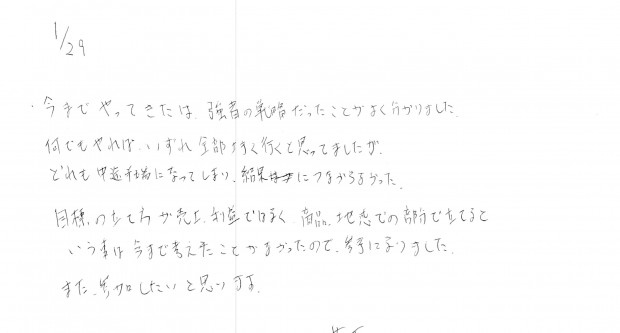 1/29
・今までやってきたは、強者の戦略だったことがよく分かりました。
何でもやれば、いずれ全部うまく行くと思ってましたが、
どれも中途半端になってしまい、結果につながらなかった。
目標の立て方が売上、利益ではなく 商品、地域での部分で立てると
いう事は今まで考えたことがなかったので、参考になりました。
また、参加したいと思います。